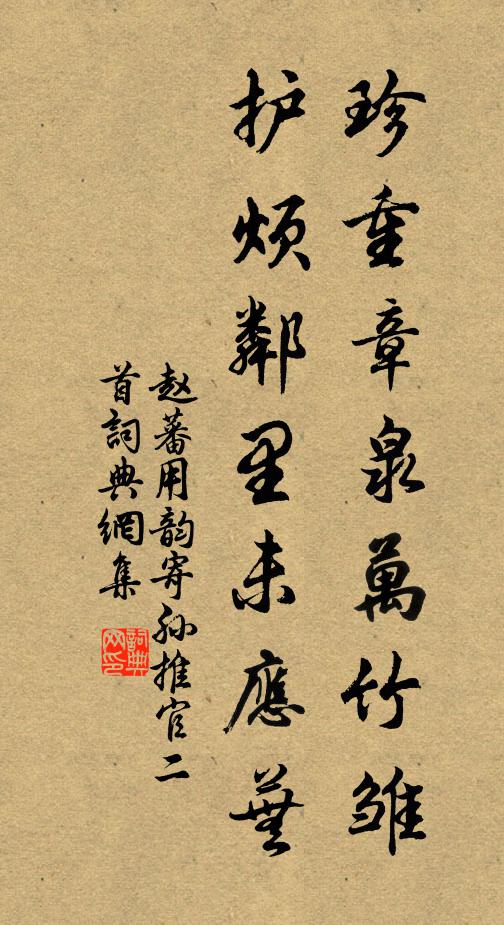 珍重章泉萬竹雏
护煩鄰里未應蕪
赵蕃用韵寄孙推官二
首詞典網集
詞典
网印